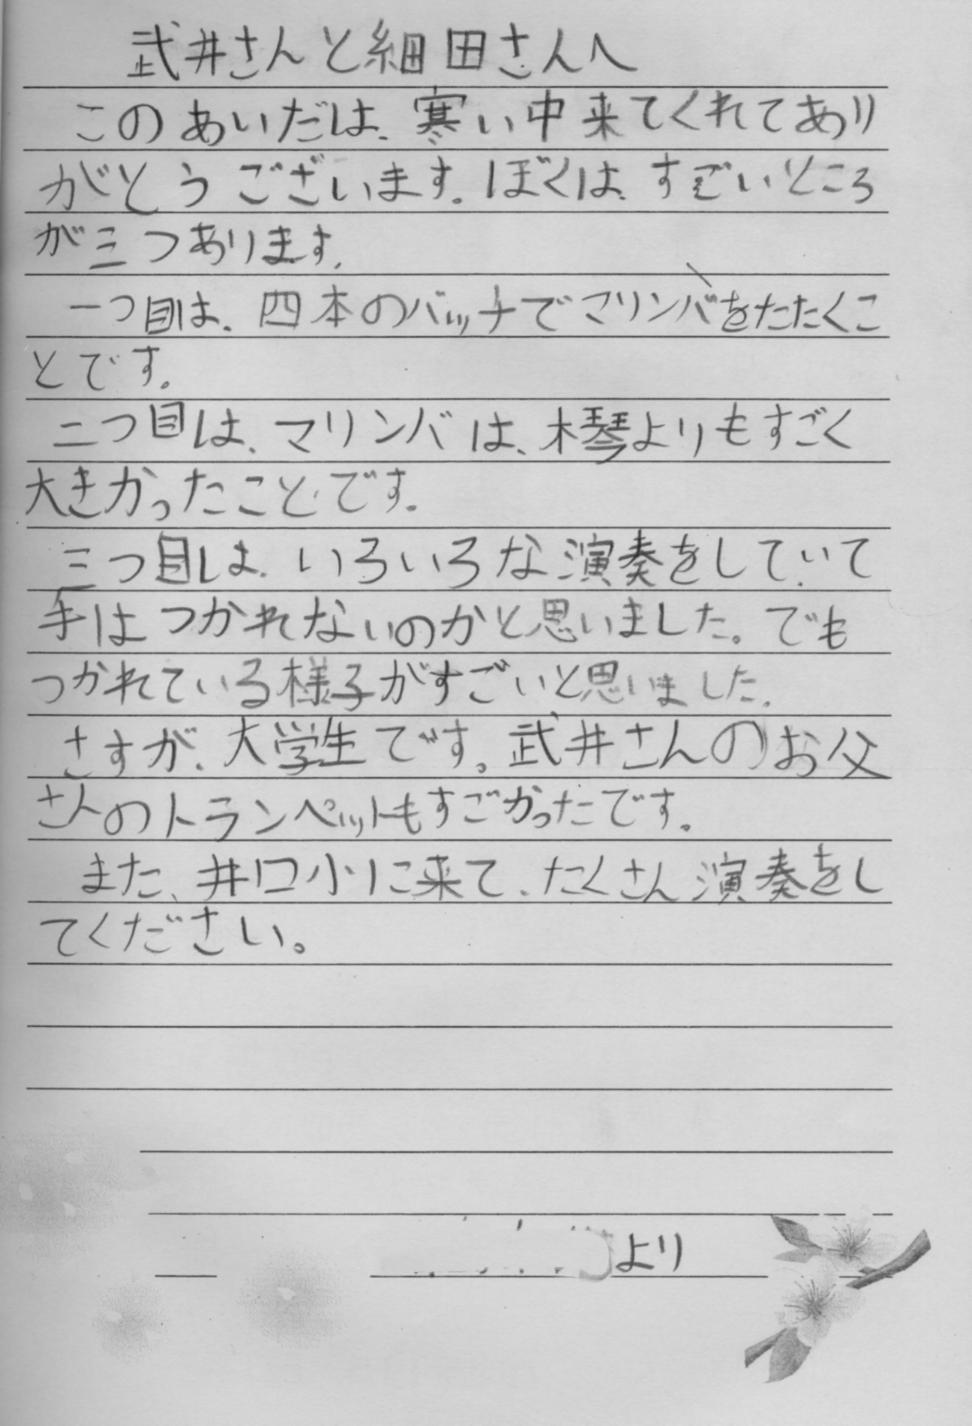 武井さんと細田さんへ
このあいだは、寒い中来てくれてあり
がとうございます。ぼくは、すごいところ
が三つあります。
一つ目は、四本のバッチでマリンバをたたくこ
とです。
二つ目は、マリンバは、木琴よりもすごく
大きかったことです。
三つ目は、いろいろな演奏をしていて
手はつかれないのかと思いました。でも
つかれている様子がすごいと思いました。
さすが、大学生です。武井さんのお父
さんのトランペットもすごかったです。
また、井口小に来て、たくさん演奏をし
てください。
より